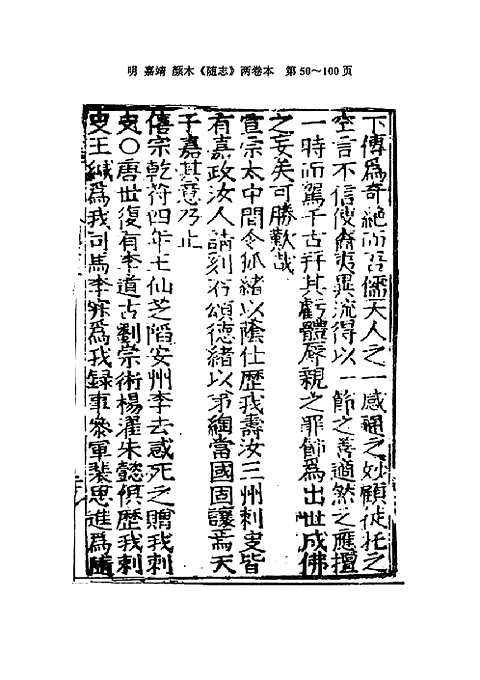 明 嘉靖 颜木《随志》两卷本 第50～100页
下傳爲奇絶而吾儒天人之一感通之妙顧徒托之
空言不信使齋夷異流得以一節之善適然之應擅
一時而駕千古并其虧體辱親之罪節爲出世成佛
之妄矣可勝歎哉
宣宗太中間令狐緒以蔭仕歷我壽汝三州刺史皆
有嘉政汝人請刻石頌德緒以弟綯當國固讓焉天
子嘉其意乃止
僖宗乾符四年王仙芝陷安州李去惑死之贈我刺
史〇唐世復有李道古劉崇術楊濯朱懿俱歷我刺
史王縅爲我司馬李寀爲我録事參軍裴思進爲隨